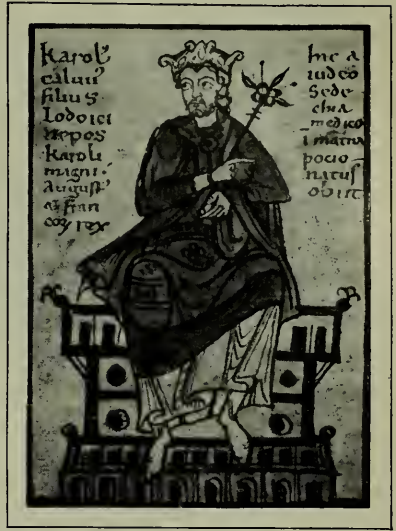 Karol᾽
caluus
filius
Lodoici
nepos
Karoli
magni.
August᾽
& fran
coꝝ rex
hic a
iudeo
Sede
chia
medico
ī mātua
pocio
natus
obiit